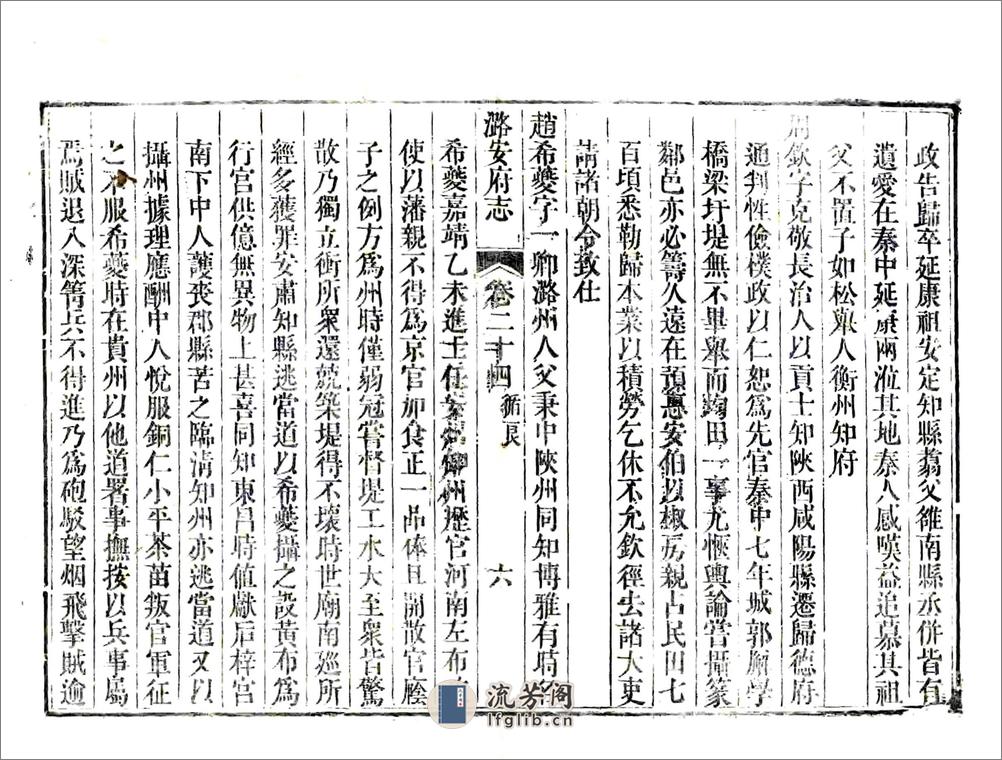 政告歸卒延康祖安定知縣翥父雒南縣丞併皆有
遺愛在秦中延康兩涖其地秦人感嘆益追慕其祖
父不置子如松舉人衡州知府
荆欽字克敬長治人以貢士知陝西咸陽縣遷歸德府
通判性儉樸政以仁恕爲先官秦中七年城郭廟學
橋梁圩堤無不畢舉而均田一事尤愜輿論嘗攝篆
鄰邑亦必籌久遠在預惠安伯以椒房親占民田七
百頃悉勒歸本業以積勞乞休不允欽徑去諸大吏
請諸朝令致仕
趙希夔字一卿潞州人父秉中陝州同知博雅有時名
潞安府志
卷二十四 循良
六
希夔嘉靖乙未進士任 州歷官河南左布
使以藩親不得爲京官加食正一品体且開散官廕
子之例方爲州時僅弱冠嘗督堤工水大至衆皆驚
散乃獨立衝所衆還兢築堤得不壞時世廟南廵所
經多獲罪安肅知縣逃當道以希夔攝之設黃布爲
行宮供億無異物上甚喜同知東昌時值獻后梓宮
南下中人護喪郡縣苦之臨淸知州亦逃當道又以
攝州據理應酬中人悅服銅仁小平茶苗叛官軍征
之不服希夔時在貴州以他道署事撫按以兵事屬
焉賊退入深箐兵不得進乃爲砲駁望烟飛擊賊逾
流芳阁
lfglib.cn